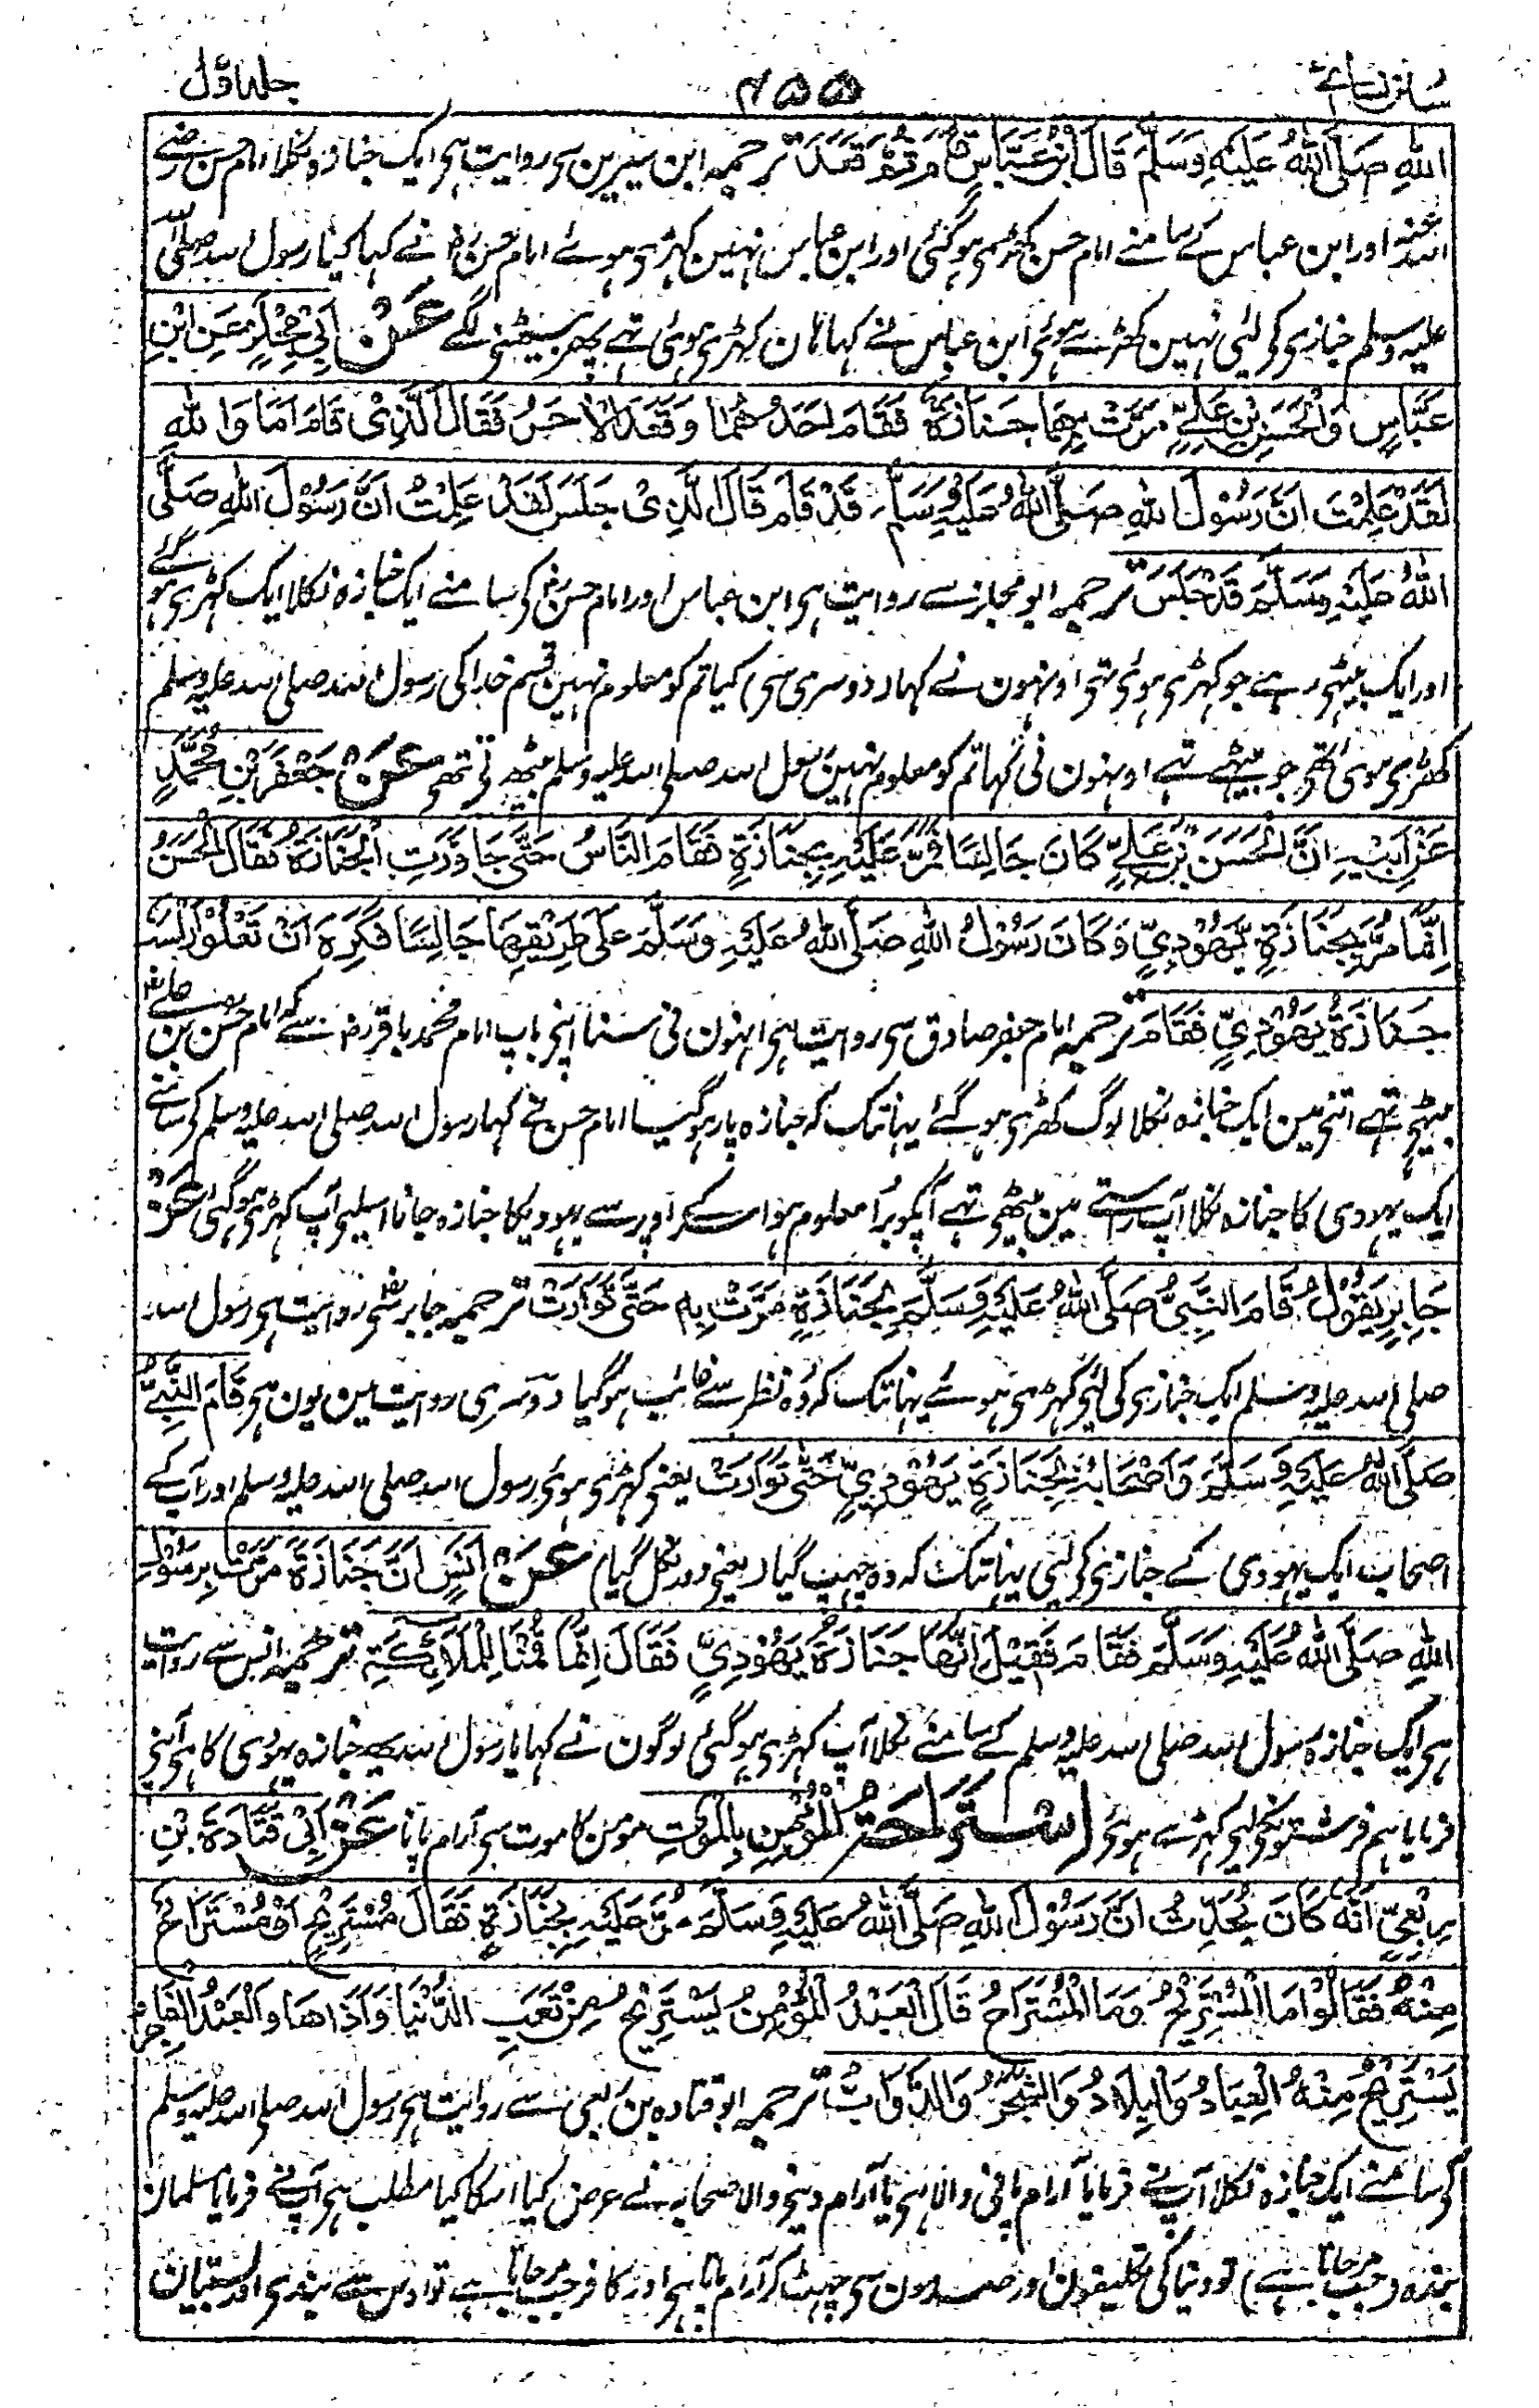 سنن نسائے ۴۵۵ جلد اوّل
اللهِ صَلَّى اللهُ عَلَيْهِ وَسَلَّمَ قَالَ ابْنُ عَبَّاسٍ قَامَ ثُمَّ قَعَدَ ترجمہ ابن سیرین سے روایت ہی ایک جنازہ نکلا امام حسن رضے
اللہ عنہ اور ابن عباس کے سامنے امام حسن کھڑی ہوگئی اور ابن عباس نہین کہڑی ہوئے امام حسن رض نے کہا کیا رسول اللہ صلی اللہ
علیہ وسلم جنازی کی لئی نہین کھڑے ہوئی ابن عباس نے کہا ہان کہڑی ہوئی تہے پھر بیٹھنی لگے عَنْ اَبِي مِجْلَزٍ عَنِ ابْنِ
عَبَّاسٍ وَالْحَسَنِ بْنِ عَلِيٍّ مَرَّتْ بِهِمَا جَنَازَةٌ فَقَامَ اَحَدُهُمَا وَقَعَدَ الْاٰخَرُ فَقَالَ الَّذِىْ قَامَ اَمَا وَاللهِ
لَقَدْ عَلِمْتَ اَنَّ رَسُوْلَ اللهِ صَلَّى اللهُ عَلَيْهِ وَسَلَّمَ قَدْ قَامَ قَالَ الَّذِىْ جَلَسَ لَقَدْ عَلِمْتُ اَنَّ رَسُوْلَ اللهِ صَلَّى
اللهُ عَلَيْهِ وَسَلَّمَ قَدْ جَلَسَ ترجمہ ابو مجلز سے روایت ہی ابن عباس اور امام حسن رض کی سامنے ایک جنازہ نکلا ایک کہڑی ہو گئے
اور ایک بیٹھی رہے جو کہڑی ہوئی تہی اونہون نے کہا (دوسری سی) کیا تم کو معلوم نہین قسم خدا کی رسول اللہ صلی اللہ علیہ وسلم
کھڑی ہوئی تھی جو بیٹھے تہے اونہون نی کہا تم کو معلوم نہین رسول اللہ صلی اللہ علیہ وسلم بیٹھ تی تھی عَنْ جَعْفَرَ بْنِ مُحَمَّدٍ
عَنْ اَبِيْهِ اَنَّ الْحَسَنَ بْنَ عَلِيٍّ كَانَ جَالِسًا فَمُرَّ عَلَيْهِ بِجَنَازَةٍ فَقَامَ النَّاسُ حَتّٰى جَاوَزَتِ الْجَنَازَةُ فَقَالَ الْحَسَنُ
اِنَّمَا مُرَّ بِجَنَازَةِ يَهُوْدِيٍّ وَكَانَ رَسُوْلُ اللهِ صَلَّى اللهُ عَلَيْهِ وَسَلَّمَ عَلٰى طَرِيْقِهَا جَالِسًا فَكَرِهَ اَنْ تَعْلُوَ رَاْسَهُ
جَنَازَةُ يَهُوْدِيٍّ فَقَامَ ترجمہ امام جعفر صادق سی روایت ہی انہون نی سنا اپنی باپ امام محمد باقر رض سے کہ امام حسن بن علی رض
بیٹھی تہے اتنی مین ایک جنازہ نکلا لوگ کھڑی ہو گئے یہانتک کہ جنازہ پار ہو گیا امام حسن نے کہا رسول اللہ صلی اللہ علیہ وسلم کی سامنے
ایک یہودی کا جنازہ نکلا آپ راستے مین بیٹھی تہے آپکو برا معلوم ہوا سر کے اوپر سے یہودیکا جنازہ جانا اسلیی آپ کہڑی ہو گئی عَنْ
جَابِرٍ يَقُوْلُ قَامَ النَّبِيُّ صَلَّى اللهُ عَلَيْهِ وَسَلَّمَ لِجَنَازَةٍ مَرَّتْ بِهِ حَتّٰى تَوَارَتْ ترجمہ جابر رض سی روایت ہی رسول اللہ
صلی اللہ علیہ وسلم ایک جنازی کی لئی کہڑی ہوئے یہانتک کہ وہ نظر سے غائب ہو گیا دوسری روایت مین یون ہی قَامَ النَّبِيُّ
صَلَّى اللهُ عَلَيْهِ وَسَلَّمَ وَاَصْحَابُهُ لِجَنَازَةِ يَهُوْدِيٍّ حَتّٰى تَوَارَتْ یعنی کہڑی ہوئی رسول اللہ صلی اللہ علیہ وسلم اور آپ کے
اصحاب ایک یہودی کے جنازی کی لئی یہانتک کہ وہ چہپ گیا (یعنی دور نکل گیا) عَنْ اَنَسٍ اَنَّ جَنَازَةً مَرَّتْ بِرَسُوْلِ
اللهِ صَلَّى اللهُ عَلَيْهِ وَسَلَّمَ فَقَامَ فَقِيْلَ اِنَّهَا جَنَازَةُ يَهُوْدِيٍّ فَقَالَ اِنَّمَا قُمْنَا لِلْمَلَائِكَةِ ترجمہ انس سے روایت
ہی ایک جنازہ رسول اللہ صلی اللہ علیہ وسلم کے سامنے نکلا آپ کہڑی ہو گئی لوگون نے کہا یا رسول اللہ یہ جنازہ یہودی کا ہی آپنی
فرمایا ہم فرشتونکی لیی کہڑے ہوئی اِسْتِرَاحَةُ الْمُؤْمِنِ بِالْمَوْتِ مومن کا موت سی آرام پانا عَنْ اَبِى قَتَادَةَ بْنِ
رِبْعِيٍّ اَنَّهُ كَانَ يُحَدِّثُ اَنَّ رَسُوْلَ اللهِ صَلَّى اللهُ عَلَيْهِ وَسَلَّمَ مُرَّ عَلَيْهِ بِجَنَازَةٍ فَقَالَ مُسْتَرِيْحٌ اَوْ مُسْتَرَاحٌ
مِنْهُ فَقَالُوْا مَا الْمُسْتَرِيْحُ وَمَا الْمُسْتَرَاحُ قَالَ الْعَبْدُ الْمُؤْمِنُ يَسْتَرِيْحُ مِنْ تَعَبِ الدُّنْيَا وَاَذَاهَا وَالْعَبْدُ الْفَاجِرُ
يَسْتَرِيْحُ مِنْهُ الْعِبَادُ وَالْبِلَادُ وَالشَّجَرُ وَالدَّوَابُّ ترجمہ ابو قتادہ بن ربعی سے روایت ہی رسول اللہ صلی اللہ علیہ وسلم
کی سامنے ایک جنازہ نکلا آپ نے فرمایا آرام پانی والا ہی یا آرام دینی والا صحابہ نے عرض کیا اسکا کیا مطلب ہی آپ نے فرمایا مسلمان
بندہ (جب مرجاتا ہے) تو دنیا کی تکلیفون اور صدمون سی چہٹ کر آرام پاتا ہی اور کافر جب مرجاتا ہے تو اوس سے بندی اور بستیان